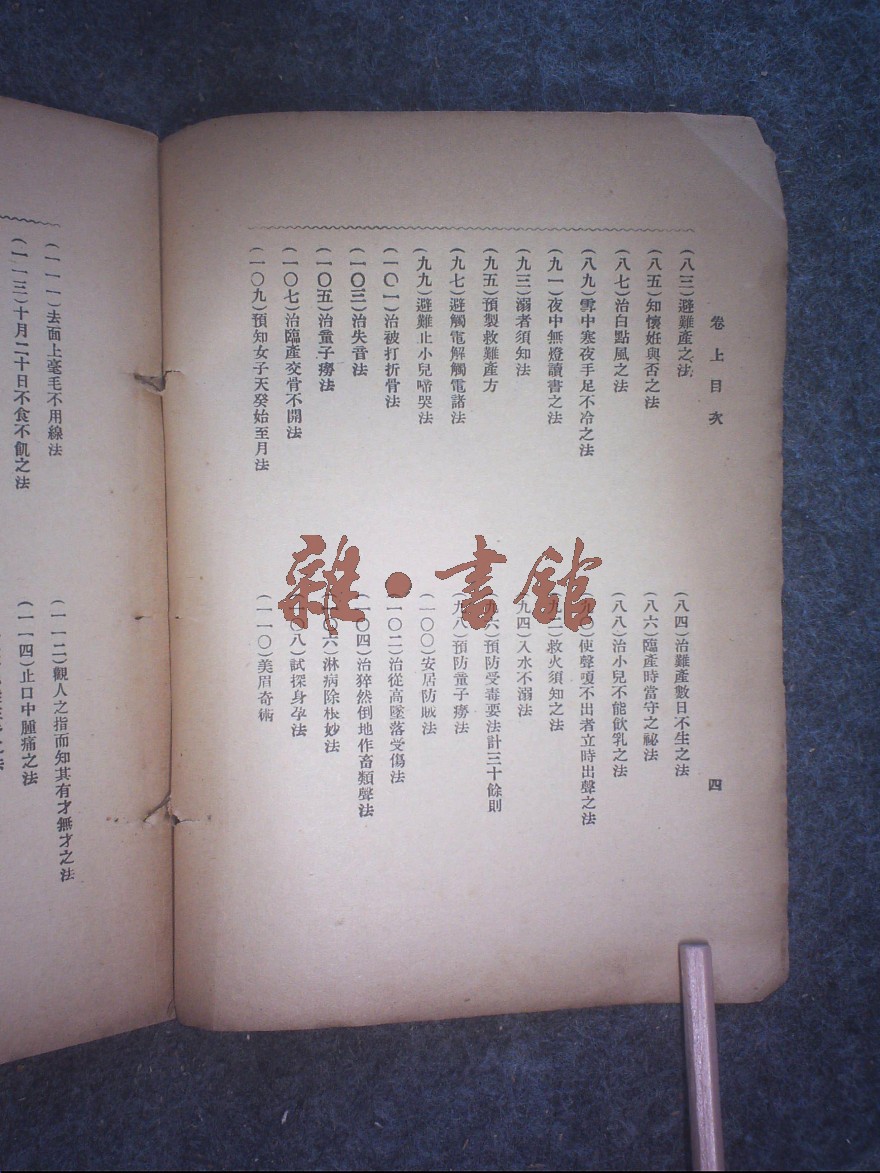 卷上目次
四
(八三)避難產之法
(八四)治難產數日不生之法
(八五)知懷姙與否之法
(八六)臨產時當守之祕法
(八七)治白點風之法
(八八)治小兒不能飲乳之法
(八九)雪中寒夜手足不冷之法
(九〇)使聲嗄不出者立時出聲之法
(九一)夜中無燈讀書之法
(九二)救火須知之法
(九三)溺者須知法
(九四)入水不溺法
(九五)預製救難產方
(九六)預防受毒要法計三十餘則
(九七)避觸電解觸電諸法
(九八)預防童子癆法
(九九)避難止小兒啼哭法
(一〇〇)安居防賊法
(一〇一)治被打折骨法
(一〇二)治從高墜落受傷法
(一〇三)治失音法
(一〇四)治猝然倒地作畜類聲法
(一〇五)治童子癆法
(一〇六)淋病除根妙法
(一〇七)治臨產交骨不開法
(一〇八)試探身孕法
(一〇九)預知女子天癸始至月法
(一一〇)美眉奇術
(一一一)去面上毫毛不用線法
(一一二)觀人之指而知其有才無才之法
(一一三)十月二十日不食不飢之法
(一一四)止口中腫痛之法
雜·書館